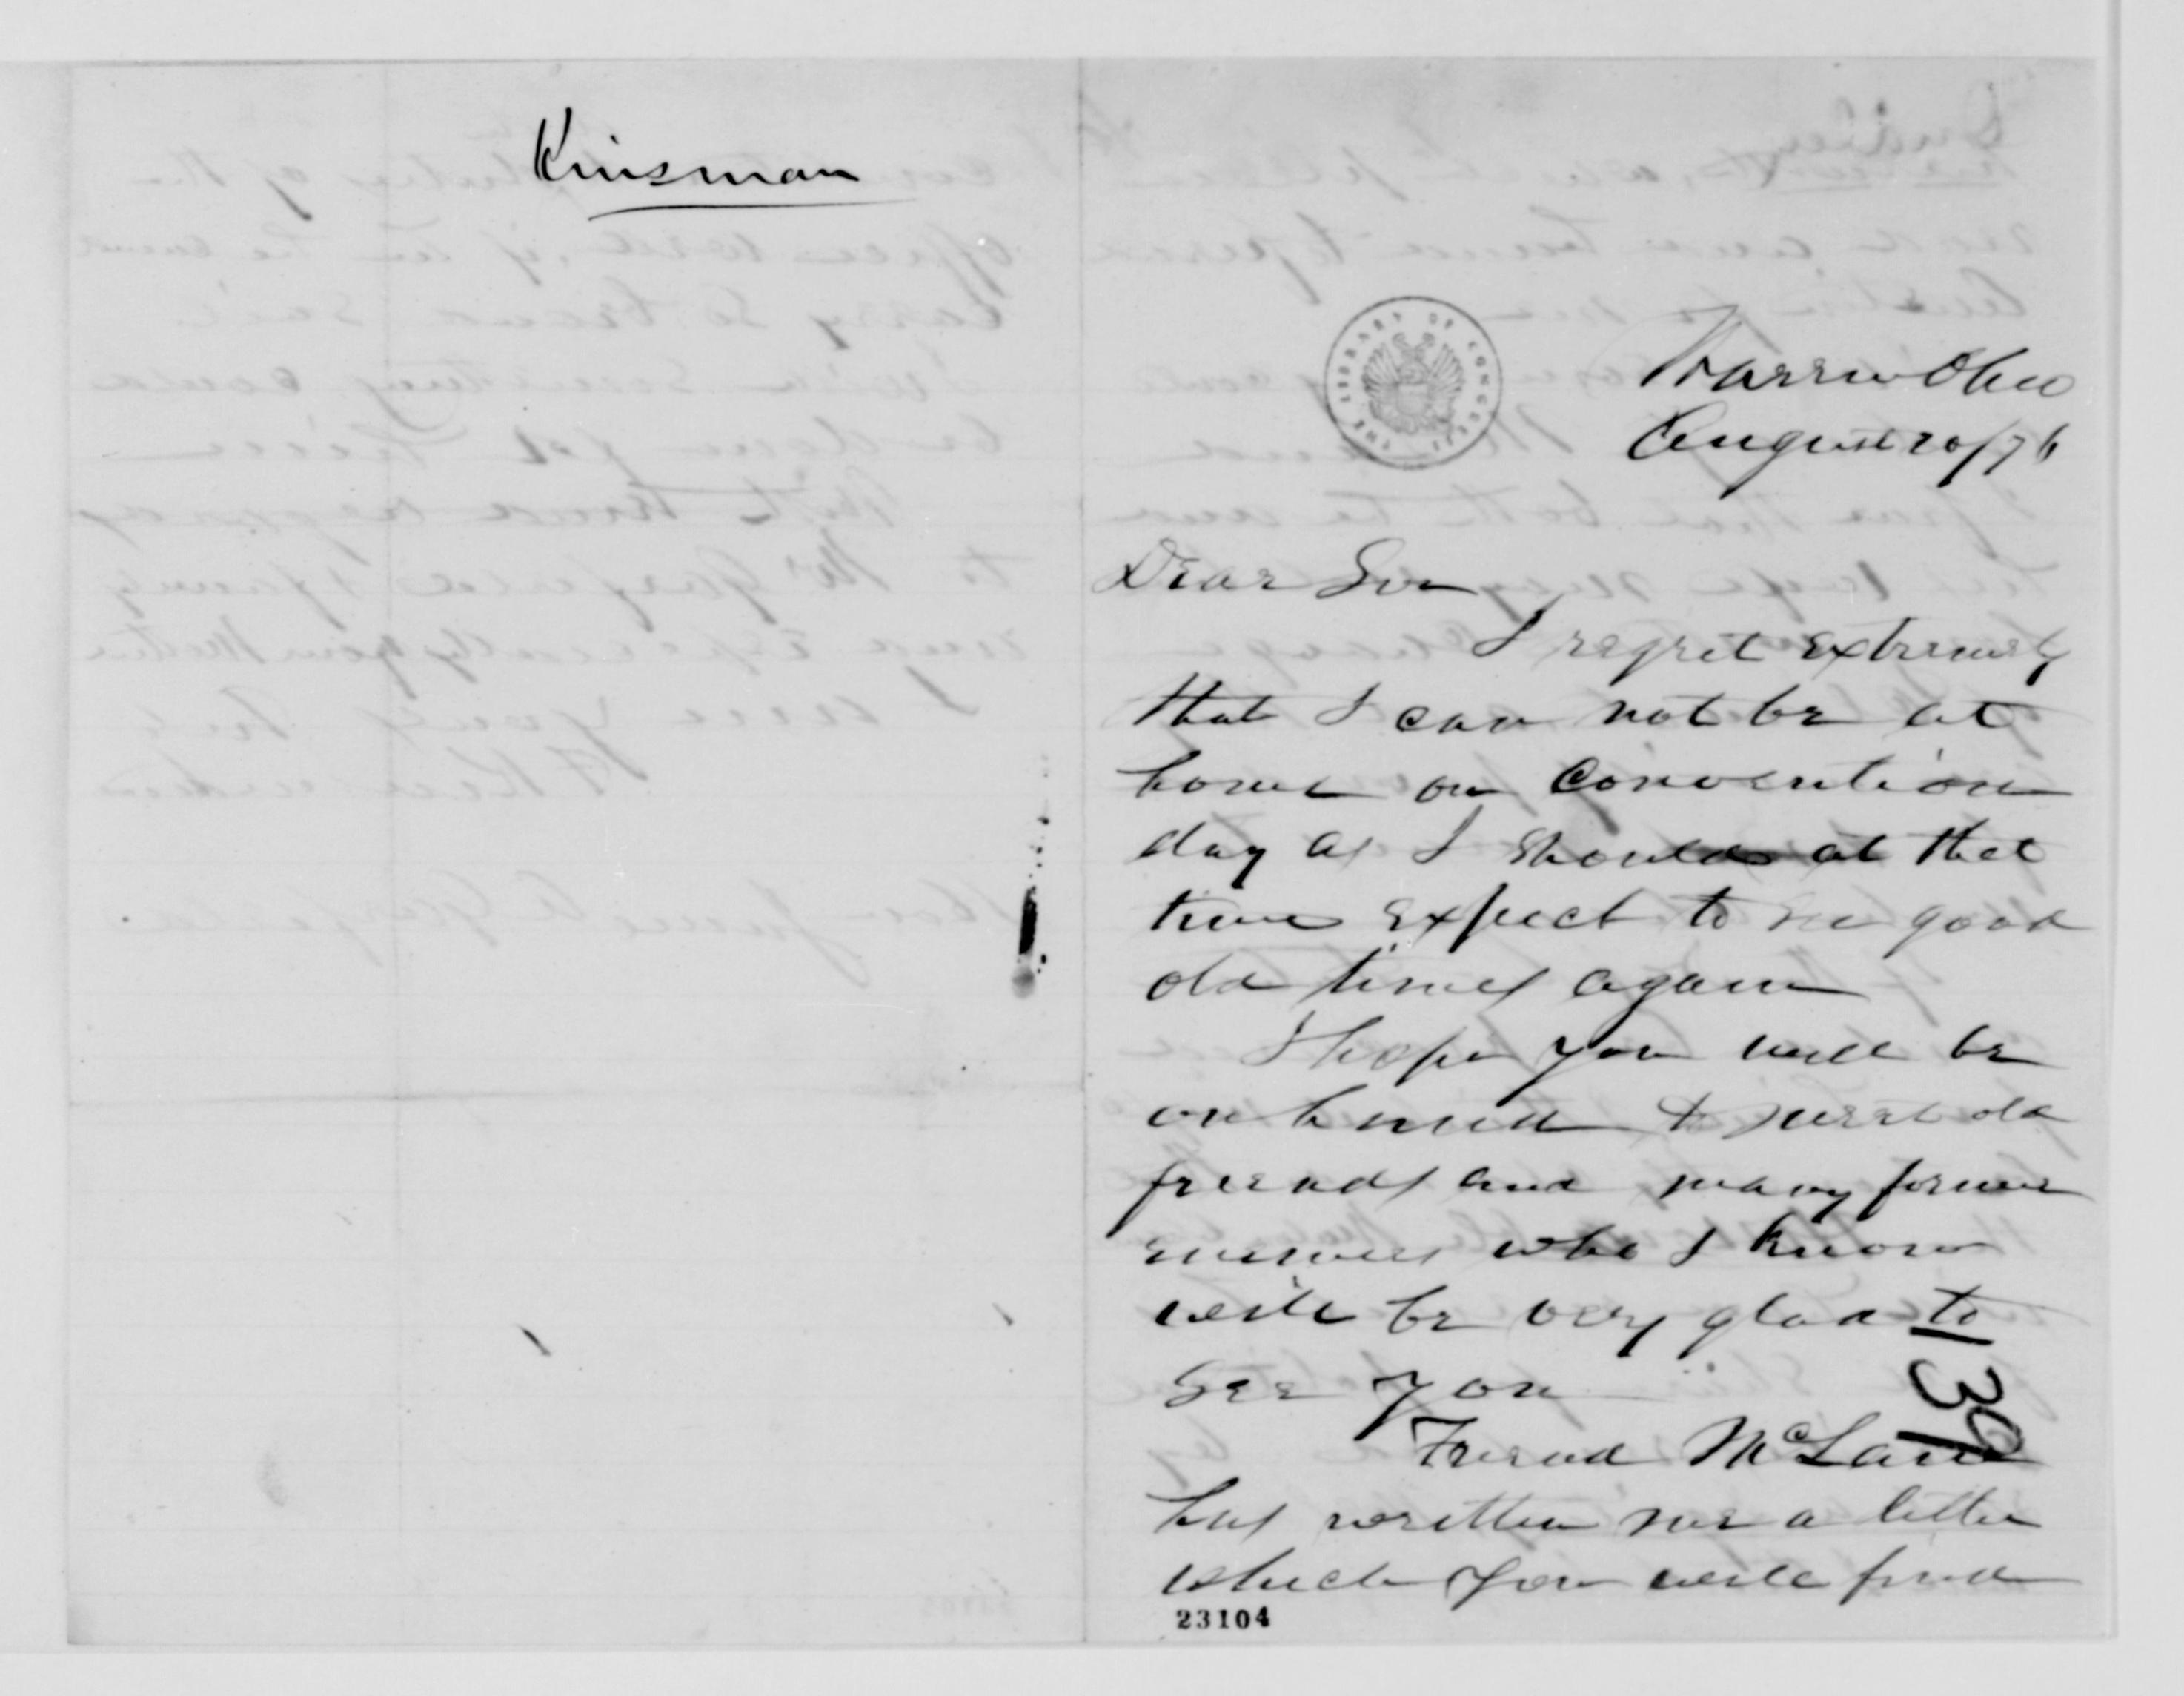 Kinsman
THE LIBRARY OF CONGRESS
Warren Ohio
August 20/76
Dear Sir
I regret extremely
that I can not be at
home on Convention
day as I should at that
time expect to see good
old times again
I hope you will be
on hand & meet old
friends and many former
who I know
will be very glad to
see you
139
Friend McLain
has written me a letter
which you will find
23104